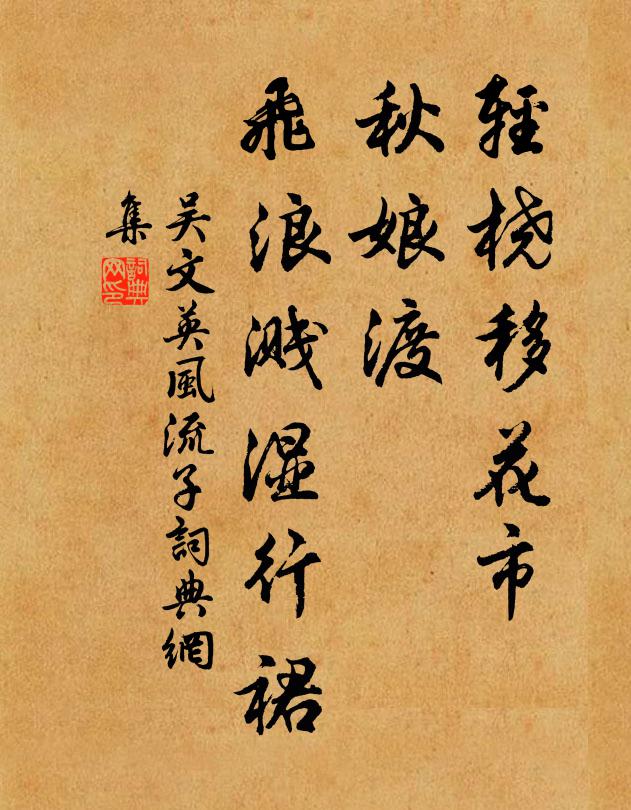 輕桡移花市
秋娘渡
飛浪溅湿行裙
吴文英風流子詞典網
集
詞典
网印